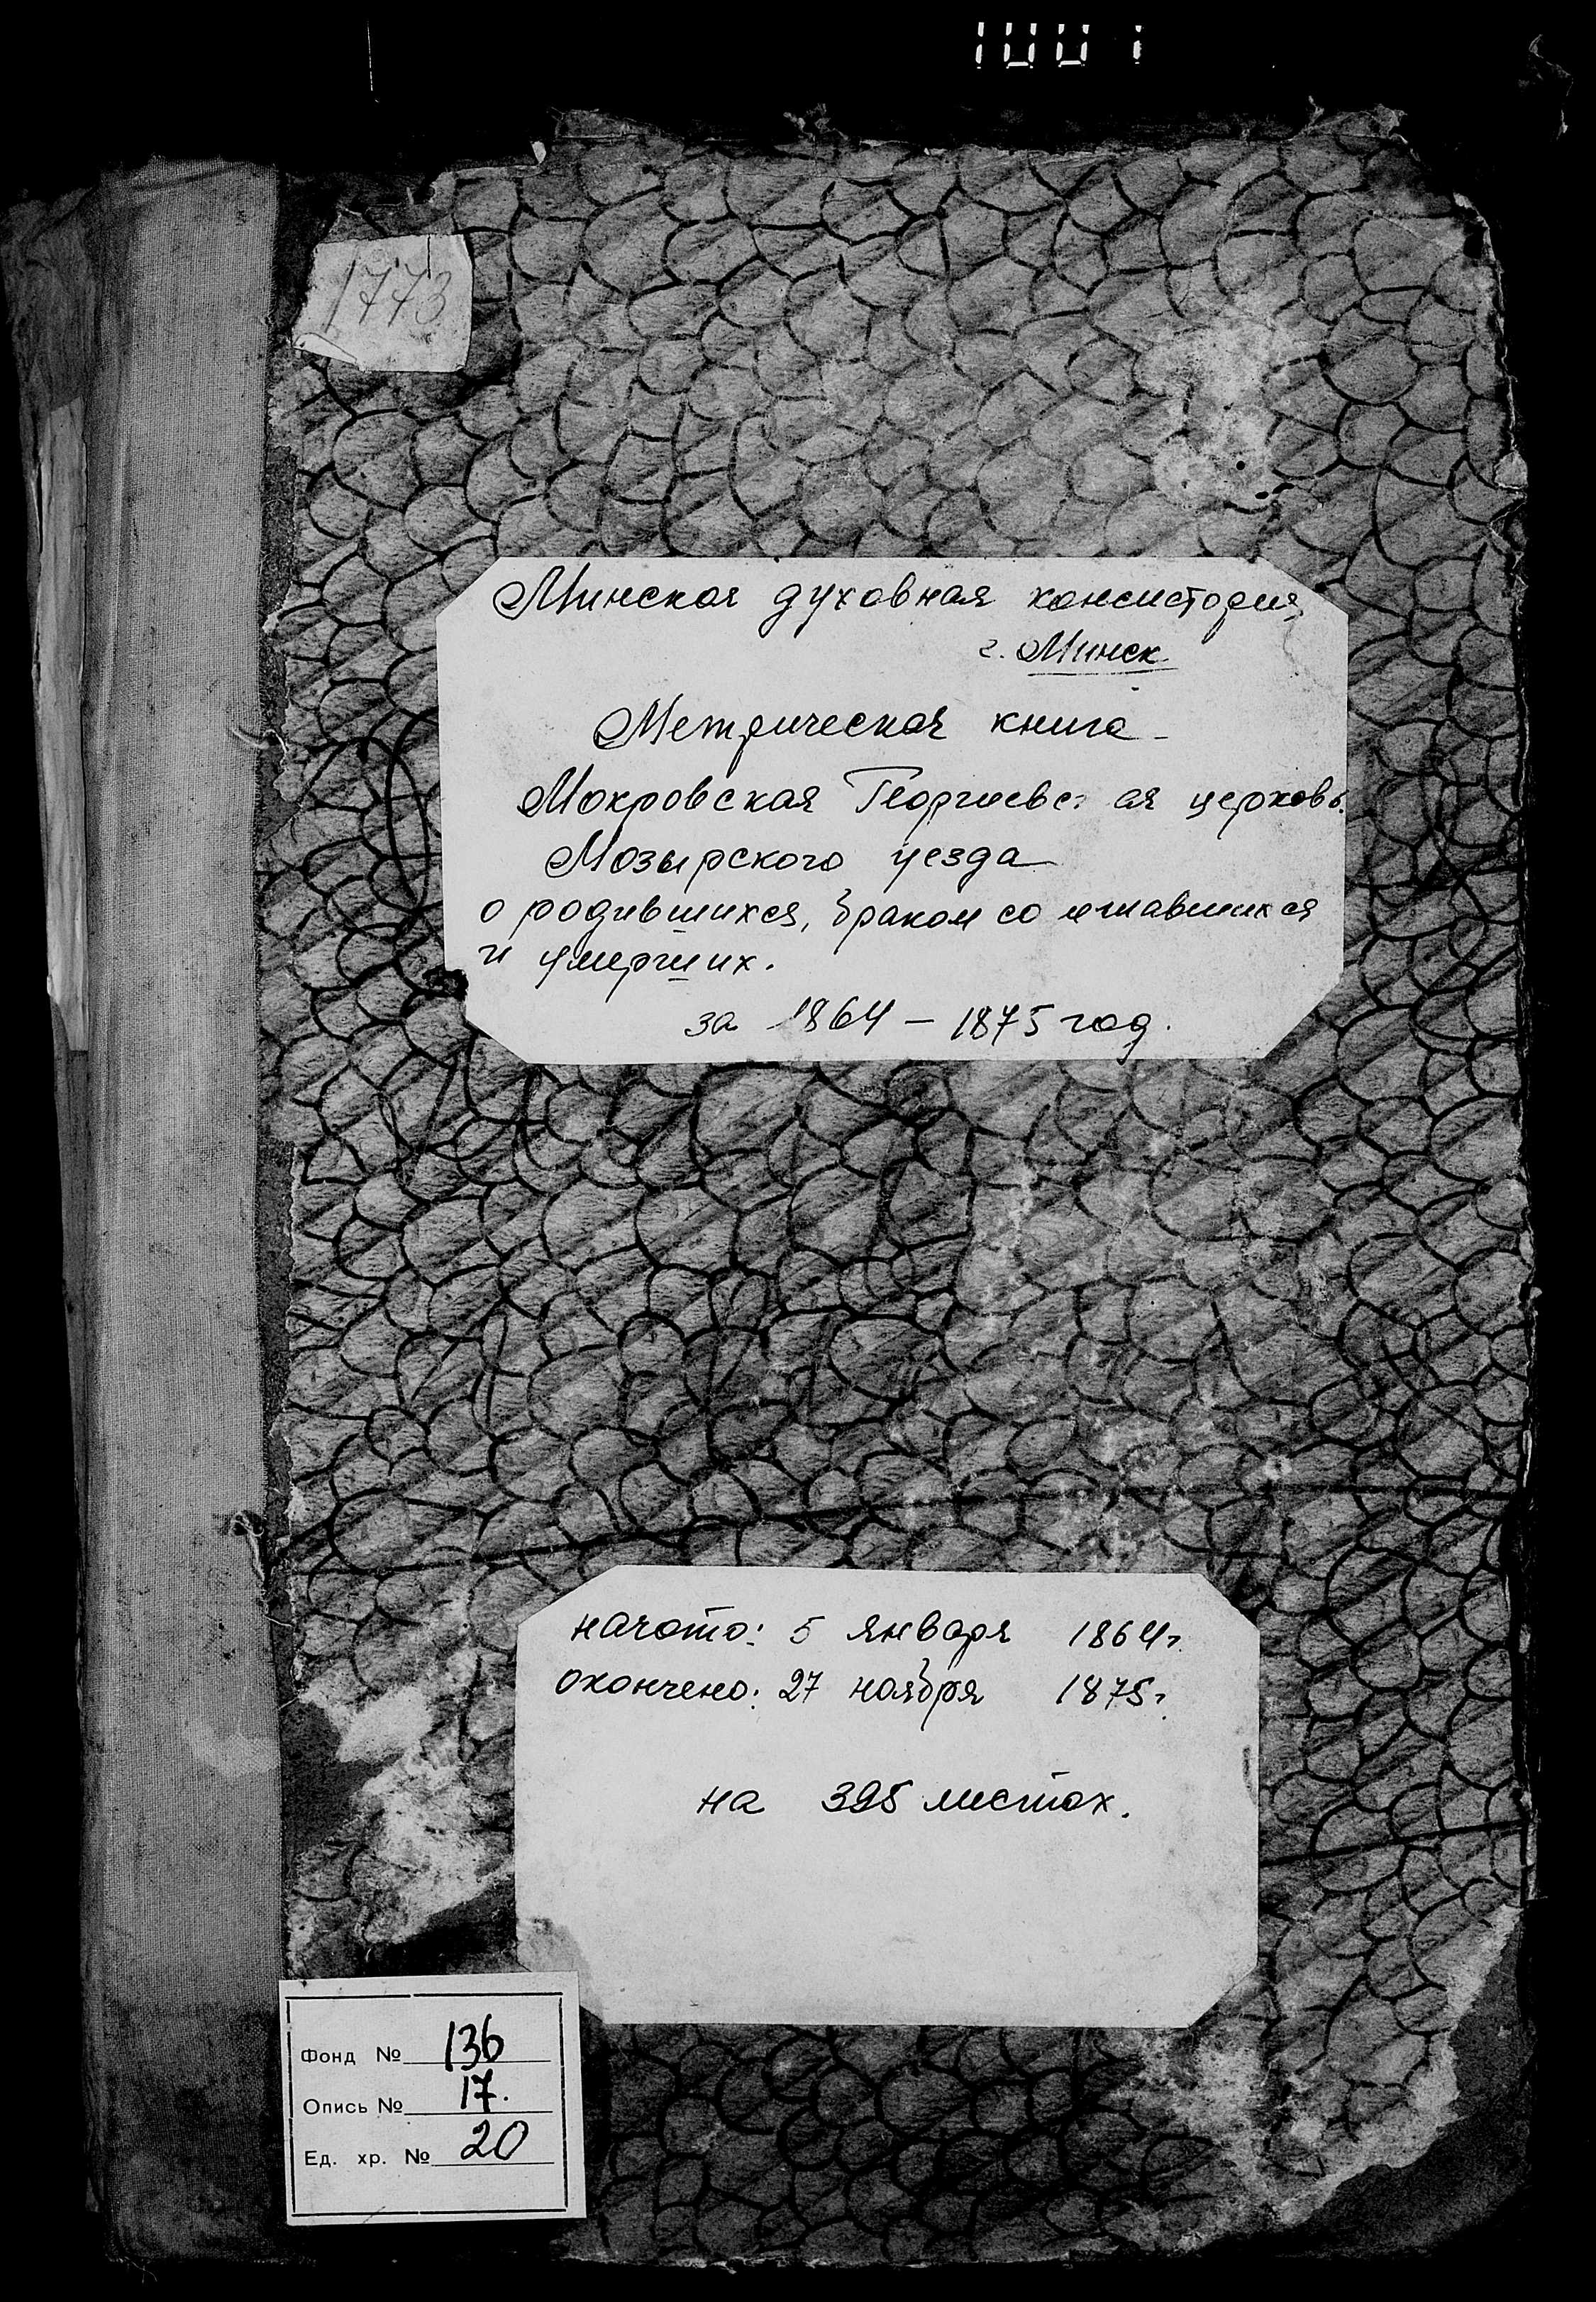 1773
Минская духовная консистория
г. Минск
Метрическая книга
Мокровская Георгиевс ая церковь
Мозырского уезда
о родившихся, браком со четавшихся
и умерших.
за 1864 – 1875 год.
начато: 5 января 1864г.
окончено: 27 ноября 1875г.
на 395 листах.
Фонд № 136
Опись № 17.
Ед. хр. № 20